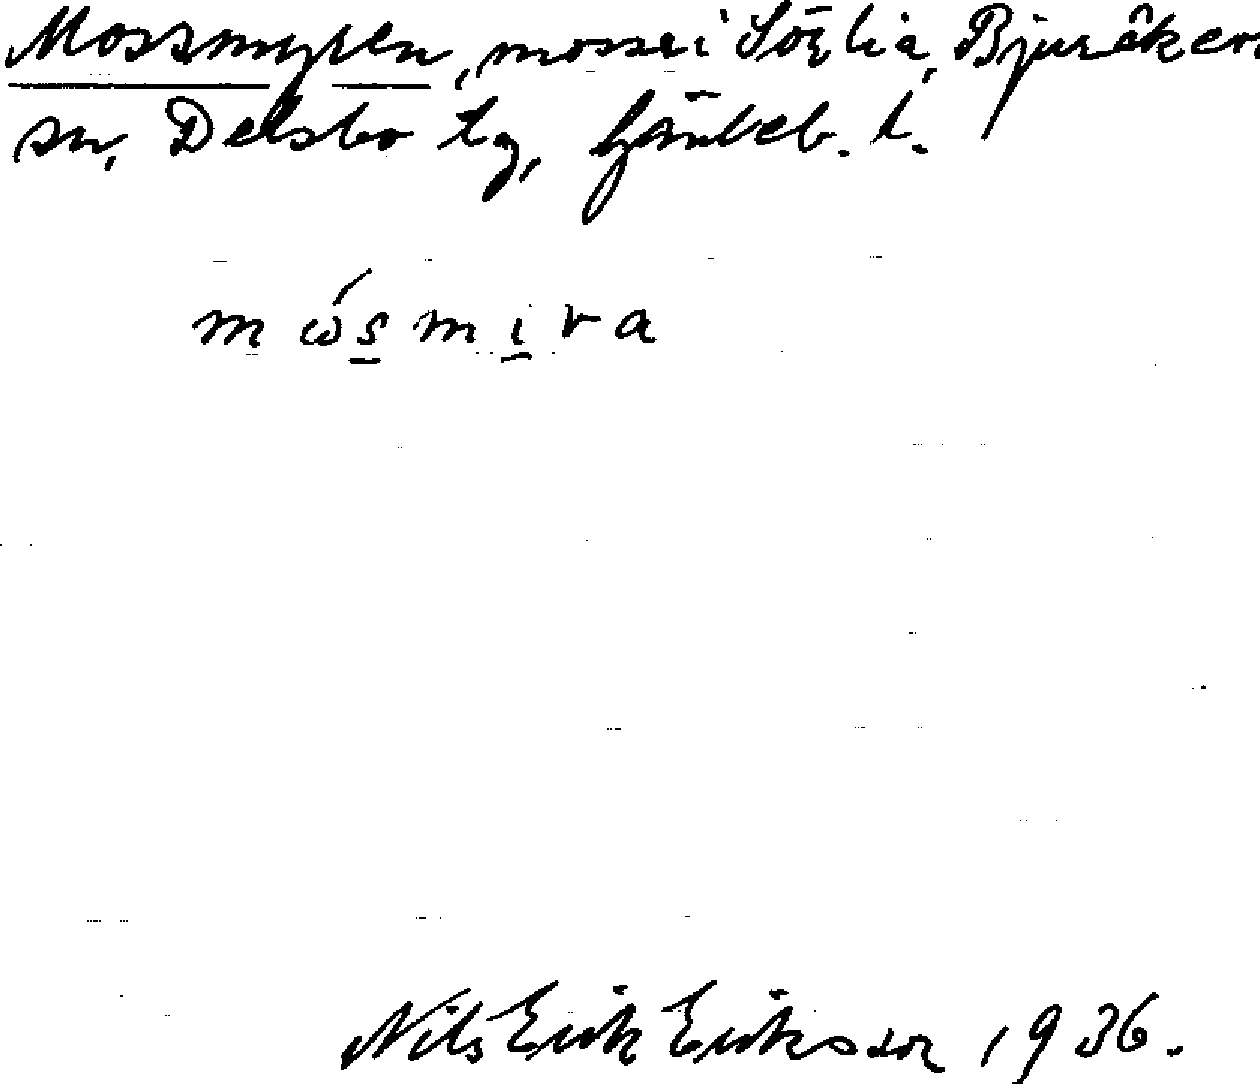 Mossmyren, mosse i Sörlia, Bjuråkers
sn, Delsbo tg, Gävleb. l.
mώs̲mı̲ra
Nils Erik Eriksson 1936.